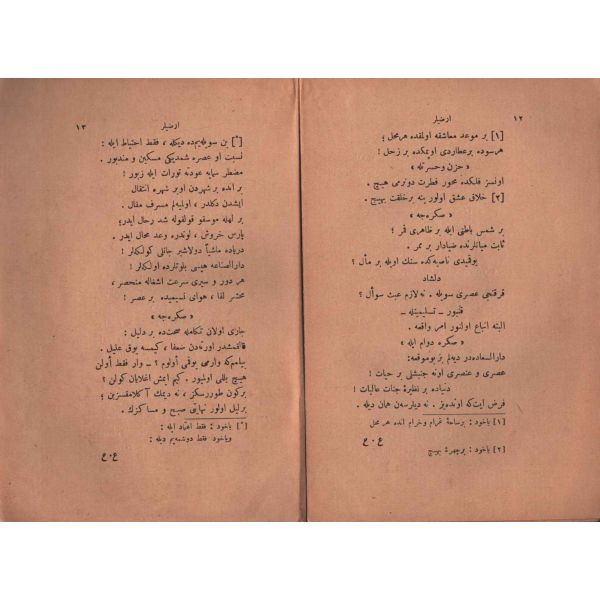 ١٢
ارضیلر
[١] بر موعد معاشقه اولمقده هر محل ؛
هر سوده بر عطاردی اوپمكده بر زحل !
« حزن و حسرتله »
اونسز فلكده محور فطرت دونرمی هیچ .
[٢] خلاق عشق اولور ینه بر خلقت بهیج .
« صكره جه »
بر شمس باطنی ایله بر ظاهری قمر ؛
ثابت میانلرنده ضیادار بر ممر .
یوقمیدی ناصیه كده سنك اویله بر مأل ؟
دلشاد
قرقنجی عصری سویله . نه لازم عبث سوآل ؟
قنبور – تسلیمیتله –
البته اتباع اولنور امر واقعه .
« صكره دوام ایله »
دار السعاده در دیه لم بز بو موقعه :
عصری و عنصری اونه جنبشلی بر حیات !
دنیاده بر نظیره جنات عالیات !
فرض ایت كه اونده یز . نه دیلرسه ن همان دیله .
[١] یاخود : بر ساحهٔ غرام و خرام انده هر محل
ع . ح
[٢] یاخود : بر چهر بهیج
١٣
ارضیلر
[*] بن سویله یم ده دیكله ، فقط احتیاط ایله :
نسبت او عصره شمدیكی مسكین و مندبور .
مضطر سمایه عودته تورات ایله زبور !
بر آنده بر شهردن اوبر شهره انتقال
ایشدن دكلدر ، اولیه لم مسرف مقال .
بر لهله موسقو قولقوله شد رحال ایدر ؛
پارس خروش ، لوندره وعد محال ایدر .
دریاده ماشیاً دولاشیر جانلی كولكه لر !
دار الصناعه هپسی بلوتلرده اولكه لر !
هر دور و سیری سرعت اشغاله منحصر ،
محشر لقا ، هوای نسیمیده بر عصر !
« صكره جه »
جاری اولان تكامله صحت ده بر دلیل :
قالقمشدر اورته دن ضعفا ، كیمسه یوق علیل .
بیلمم كه وارمی یوقمی اولوم ؟ – وار فقط أولن
هیچ بللی اولمیور ، كیم ایمش اغلایان كولن ؟
بر كون طوررسكز ، نه دیمك آكلامقسزین ؛
بر لیل اولور نهایتی صبح و مسا كزك .
[*] یاخود : فقط اعتیاد ایله :
ویاخود فقط دوشمه یم دیله :
ع . ح